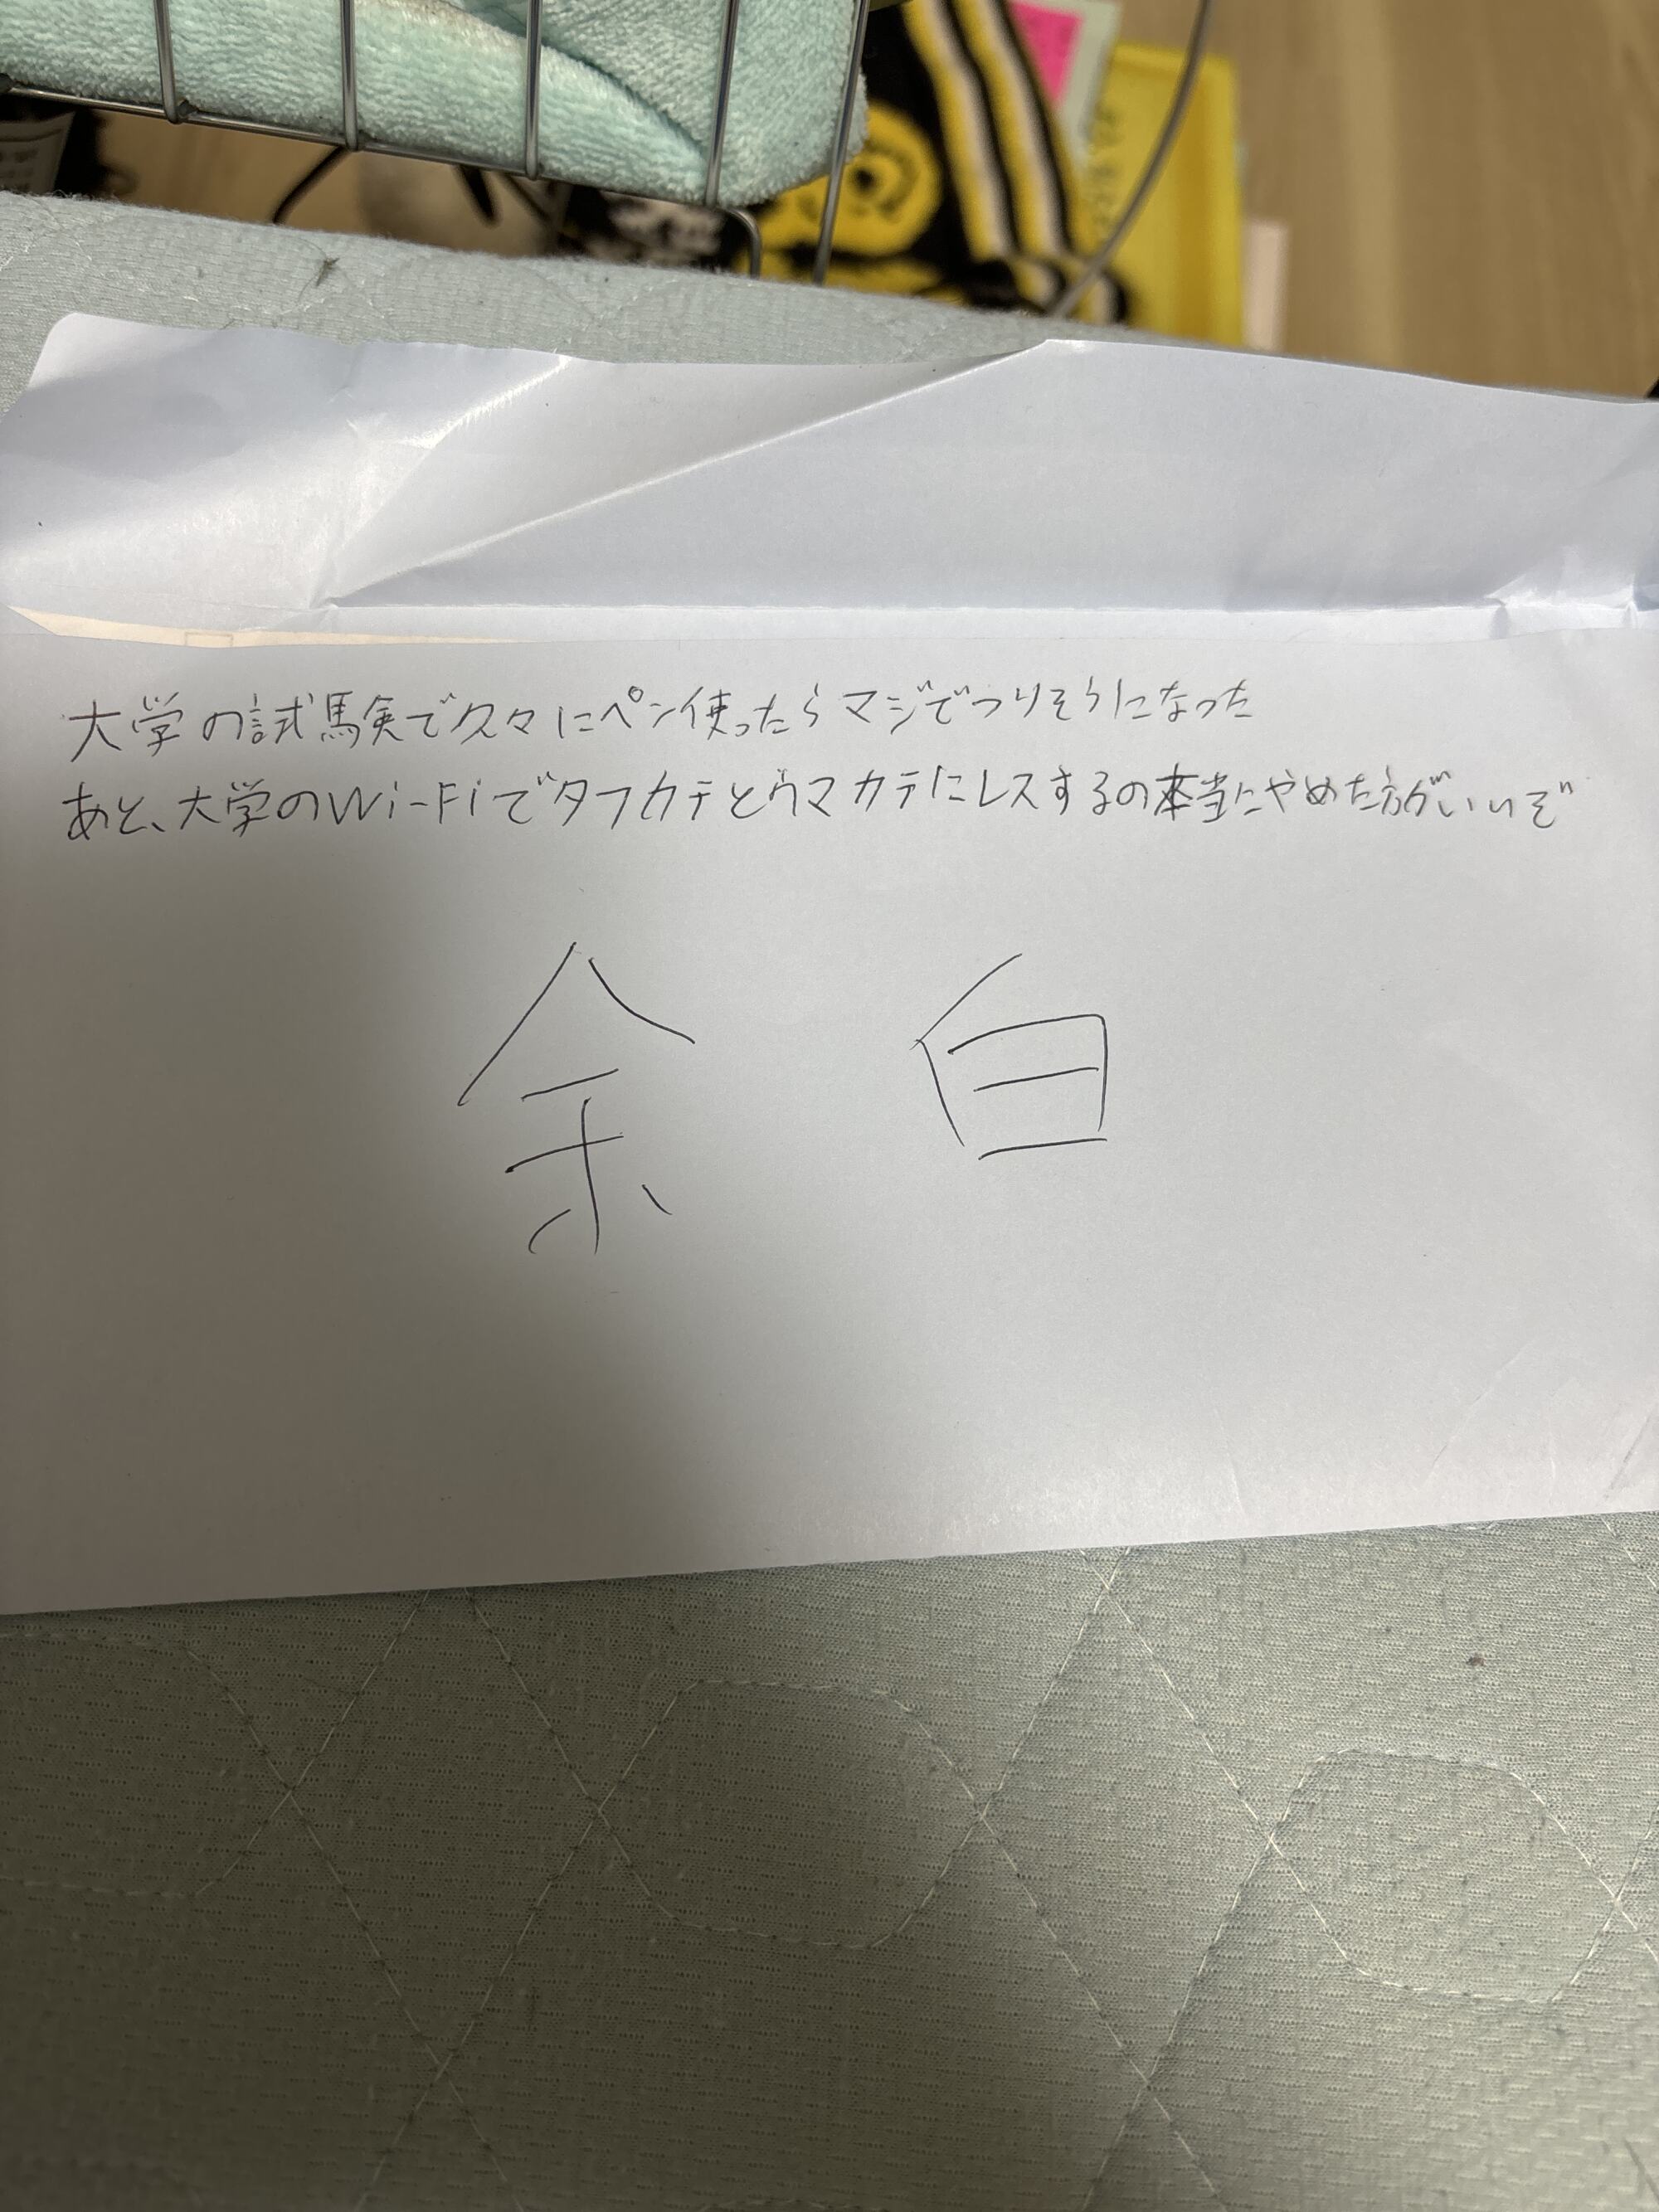 大学の試験で久々にペン使ったらマジでつりそうになった
あと、大学のWi-Fiでタフカテとウマカテにレスするの本当にやめた方がいいぞ
余白